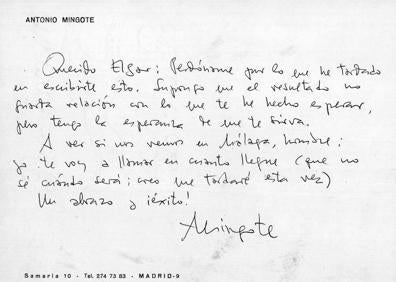 ANTONIO MINGOTE
Querido Elgar: Perdóname por lo que he tardado
en escribirte esto. Supongo que el resultado no
guarda relación con lo que te he hecho esperar,
pero tengo la esperanza de que te sirva.
A ver si nos vemos en Málaga, hombre;
yo te voy a llamar en cuanto llegue (que no
sé cuándo será; creo que tardaré esta vez)
Un abrazo y ¡éxito!
Mingote
Samaria 10 - Tel. 274 73 83 - MADRID-9